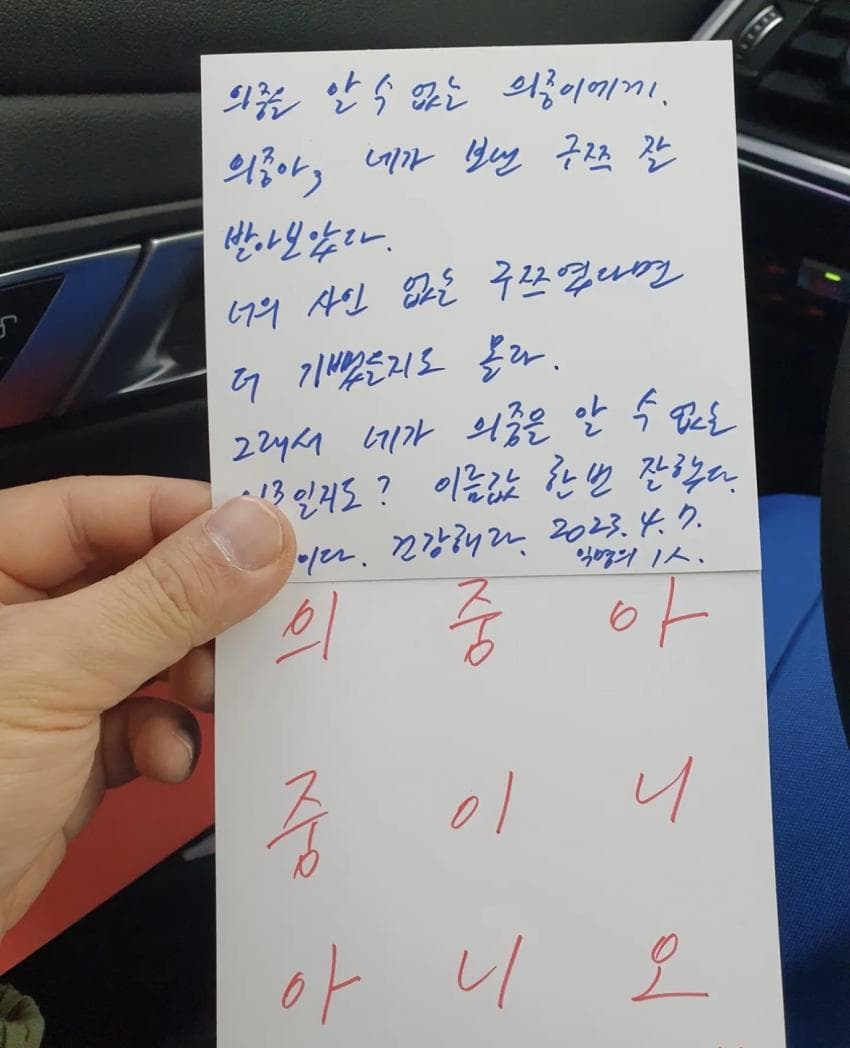 의중을 알 수 없는 의중이에게.
의중아, 네가 보낸 굿즈 잘
받아보았다.
너의 사인 없는 굿즈였다면
더 기뻤을지도 몰라.
그래서 네가 의중을 알 수 없는
일지도? 이름값 한번 잘하누다.
이다. 건강해라. 2023. 4. 7.
익명의 1人.
의 중 아
중 이 니
아 니 오